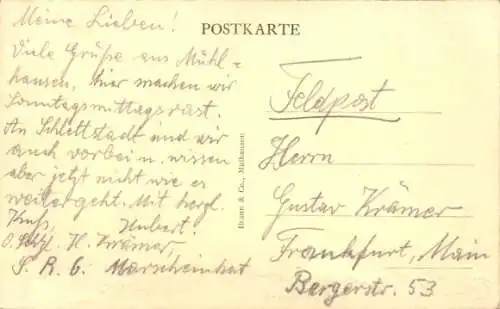 POSTKARTE
Meine Lieben!
Viele Grüße aus Mühl=
hausen, hier machen wir
Sonntagsmittagsrast.
An Schlettstadt sind wir
auch vorbei u. wissen
aber jetzt nicht wie es
weitergeht. Mit herzl.
Kuß, Hubert.
H. Krämer
S. R. 6. Marscheinheit
Braun & Co., Mülhausen
Feldpost
Herrn
Gustav Krämer
Frankfurt, Main
Bergerstr. 53